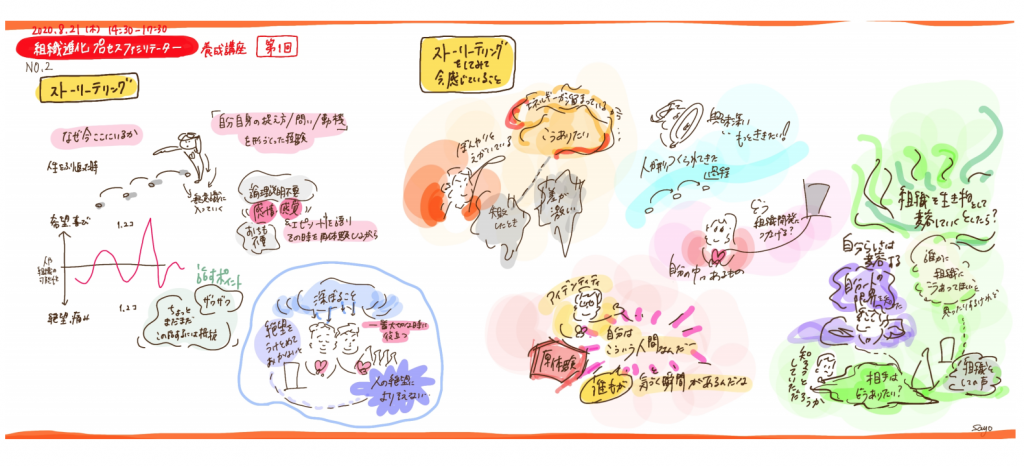 2020.8.21(木) 14:30-17:30
組織進化プロセスファシリテーター
養成講座
第1回
NO.2
ストーリーテリング
なぜ今ここにいるか
「自分自身の捉え方/問い/動機」
を形づくった経験
無意識に
入っていく
論理説明不要
感情 感覚
おちも
不要
希望・喜び
絶望・痛み
1.2コ
1.2コ
ポイント
ザワザワ
ちょっと
まだまだ
深ぼること
絶望を
うけとめて
おかないと
一番大切な時に
役立つ
人の絶望に
よりそえない
ストーリーテリング
をしてみて
今、感じていること
エネルギーが留まっている
こうありたい
ぼんやりを
えがいている
差が
激しい
興味深い
もっとききたい!
人が形つくられてきた
過程
どう
組織開発に
つなげる?
自分の中にあるもの
アイデンティティ
自分は
こういう人間なんだ…
原体験
誰もが
気づく瞬間があるんだな
組織を生き物として
変容していく
としたら?
自分らしさは
変容する
自分一人の
限界を
誰かに
組織に
こうあってほしいと
思ったりするけれど
知ろうと
していただろうか
相手は
どうありたい?
組織と
しての声
Sayo